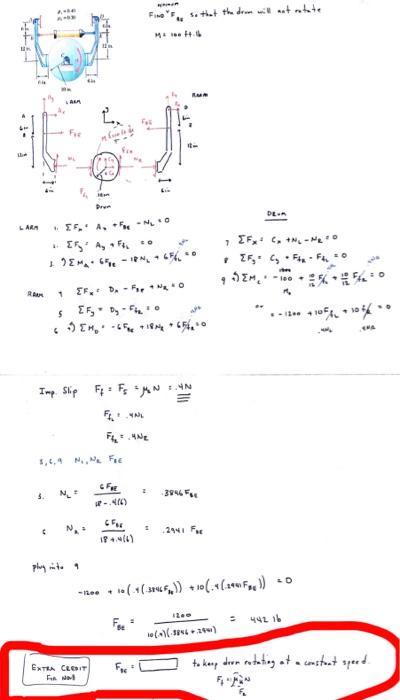 μs = 0.40
μk = 0.30
minimum
FIND FBE so that the drum will not rotate
M = 100 ft·lb
6 in.
12 in.
10 in.
6 in.
LARM
RARM
Ay
Ax
A
6in
FBE
12in
NL
6in
M = 100 ft·lb
Cy
Cx
10in
Drum
FfL
FfR
NR
FBE
6in
12in
6in
LARM 1. ΣFx = Ax + FBE - NL = 0
2. ΣFy = Ay + FfL = 0
3. ΣMA = 6FBE - 18NL + 6FfL = 0
RARM 4 ΣFx = Dx - FBE + NR = 0
5 ΣFy = Dy - FfR = 0
6 ΣMD = -6FBE + 18NR + 6FfR = 0
DRUM
7 ΣFx = Cx + NL - NR = 0
8 ΣFy = Cy + FfR - FfL = 0
9 ΣMC = -100 + 10/12 FfL + 10/12 FfR = 0
or = -1200 + 10FfL + 10FfR = 0
.4NL .4NR
Imp. Slip Ff = Fs = μsN = .4N
FfL = .4NL
FfR = .4NR
3, 6, 9 NL, NR FBE
3. NL = 6FBE / 18 - .4(6) = .3846 FBE
6 NR = 6FBE / 18 + .4(6) = .2941 FBE
plug into 9
-1200 + 10(.4(.3846FBE)) + 10(.4(.2941FBE)) = 0
FBE = 1200 / 10(.4)(.3846 + .2941) = 442 lb
EXTRA CREDIT
FOR NOW
FBE = to keep drum rotating at a constant speed.
Ff = μkN
Fk